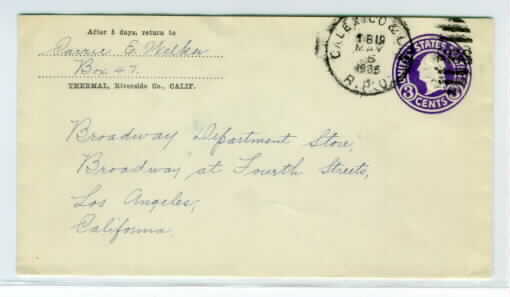 After 5 days, return to
Carrie E. Welker
Box 47.
THERMAL, Riverside Co., CALIF.
CALEXICO &
MAY
1935
R.P.O.
UNITED STATES
3 CENTS 3
Broadway Department Store,
Broadway at Fourth Streets,
Los Angeles,
California.